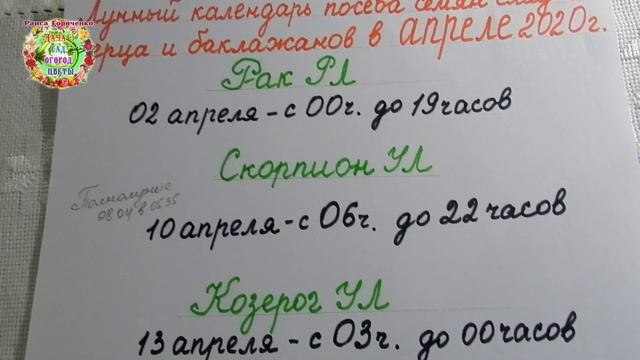 Раиса Горяченко.
ДАЧА
САД,
ОГОРОД,
ЦВЕТЫ
Лунный календарь посева семян
и баклажанов в апреле 2020г.
Рак РЛ
02 апреля - с 00ч. до 19 часов
Скорпион УЛ
Полнолуние
08.04 в 05.35
10 апреля - с 06ч. до 22 часов
Козерог УЛ
13 апреля - с 03ч. до 00 часов